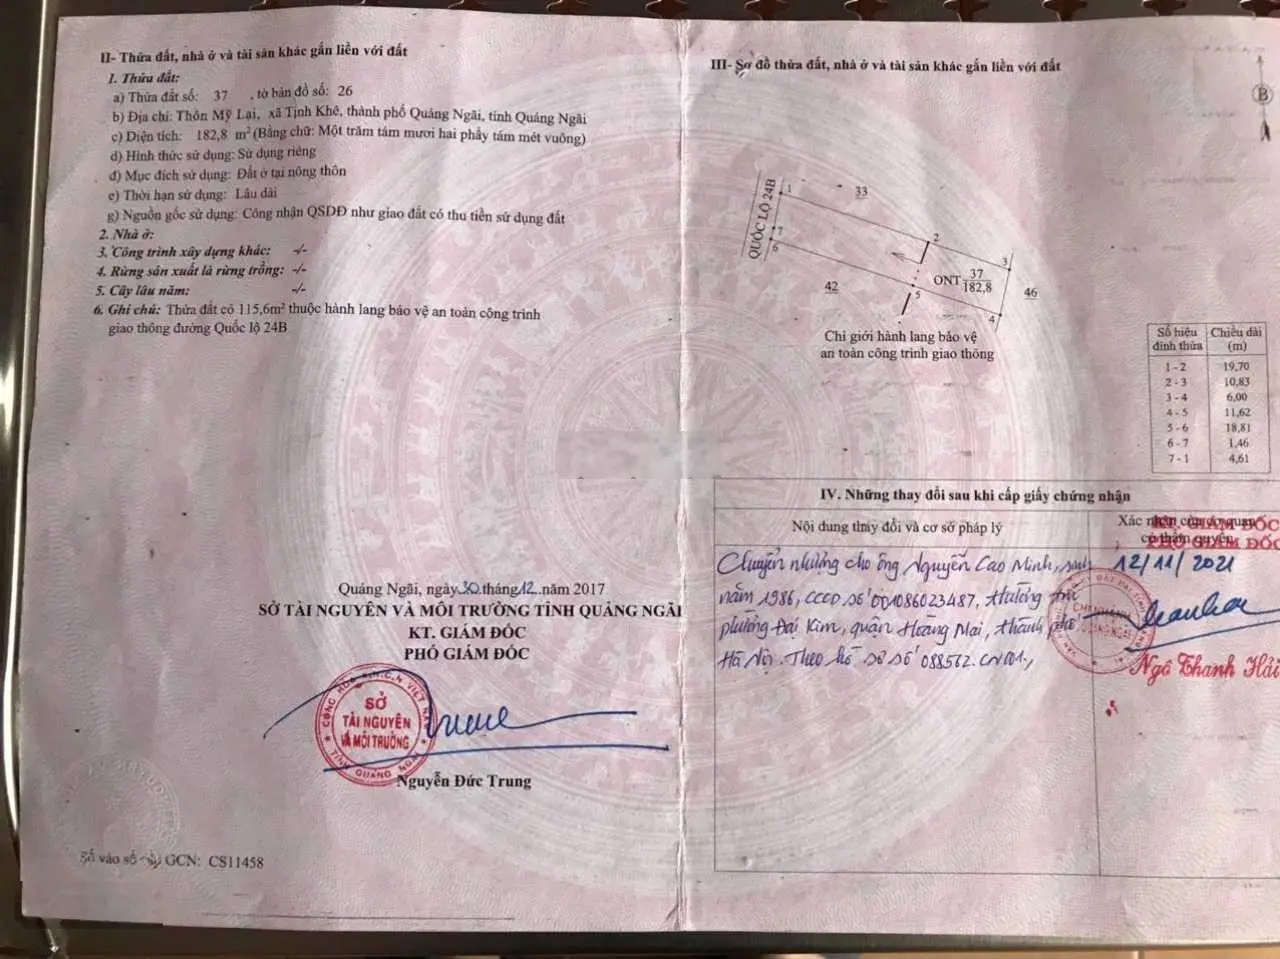 II- Thửa đất, nhà ở và tài sản khác gắn liền với đất
1. Thửa đất:
a) Thửa đất số: 37 , tờ bản đồ số: 26
b) Địa chỉ: Thôn Mỹ Lại, xã Tịnh Khê, thành phố Quảng Ngãi, tỉnh Quảng Ngãi
c) Diện tích: 182,8 m² (Bằng chữ: Một trăm tám mươi hai phẩy tám mét vuông)
d) Hình thức sử dụng: Sử dụng riêng
đ) Mục đích sử dụng: Đất ở tại nông thôn
e) Thời hạn sử dụng: Lâu dài
g) Nguồn gốc sử dụng: Công nhận QSDĐ như giao đất có thu tiền sử dụng đất
2. Nhà ở:
3. Công trình xây dựng khác: -/-
4. Rừng sản xuất là rừng trồng: -/-
5. Cây lâu năm: -/-
6. Ghi chú: Thửa đất có 115,6m² thuộc hành lang bảo vệ an toàn công trình
giao thông đường Quốc lộ 24B
Quảng Ngãi, ngày 30 tháng 12 năm 2017
SỞ TÀI NGUYÊN VÀ MÔI TRƯỜNG TỈNH QUẢNG NGÃI
KT. GIÁM ĐỐC
PHÓ GIÁM ĐỐC
CỘNG HÒA X.H.C.N VIỆT NAM
SỞ
TÀI NGUYÊN
VÀ MÔI TRƯỜNG
TỈNH QUẢNG NGÃI
Nguyễn Đức Trung
Số vào sổ cấp GCN: CS11458
III- Sơ đồ thửa đất, nhà ở và tài sản khác gắn liền với đất
B
QUỐC LỘ 24B
1
33
2
3
7
6
42
5
4
46
ONT 37
182,8
Chỉ giới hành lang bảo vệ
an toàn công trình giao thông
Số hiệu đỉnh thửa Chiều dài (m)
1 - 2 19,70
2 - 3 10,83
3 - 4 6,00
4 - 5 11,62
5 - 6 18,81
6 - 7 1,46
7 - 1 4,61
IV. Những thay đổi sau khi cấp giấy chứng nhận
Nội dung thay đổi và cơ sở pháp lý
Xác nhận của cơ quan
có thẩm quyền
KT. GIÁM ĐỐC
PHÓ GIÁM ĐỐC
Chuyển nhượng cho ông Nguyễn Cao Minh, sinh
năm 1986, CCCD số 001086023487, thường trú
phường Đại Kim, quận Hoàng Mai, thành phố
Hà Nội. Theo hồ sơ số 088562.CN001.
12/11/2021
CHI NHÁNH
Ngô Thanh Hải